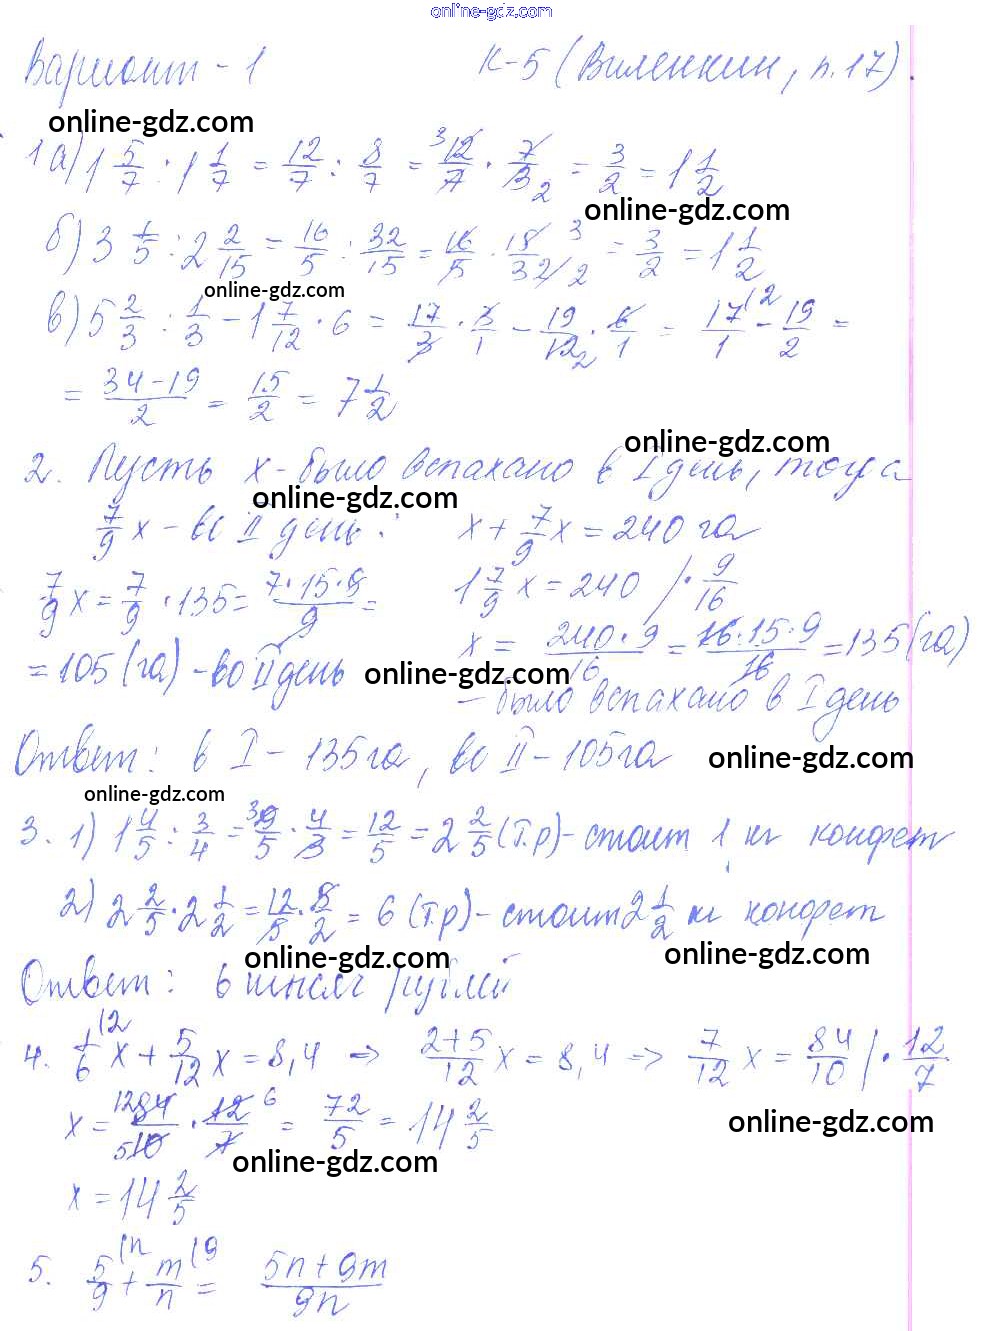 online-gdz.com
Вариант - 1 К-5 (Виленкин, п.17)
online-gdz.com
1 а) 1 5/7 : 1 1/7 = 12/7 : 8/7 = 12/7 · 7/8 = 3/2 = 1 1/2
online-gdz.com
б) 3 1/5 : 2 2/15 = 16/5 : 32/15 = 16/5 · 15/32 = 3/2 = 1 1/2
online-gdz.com
в) 5 2/3 : 1/3 - 1 7/12 · 6 = 17/3 · 3/1 - 19/12 · 6/1 = 17/1 - 19/2 =
= 34-19/2 = 15/2 = 7 1/2
online-gdz.com
2. Пусть х - было вспахано в I день, тогда
online-gdz.com
7/9 х - во II день. х + 7/9 х = 240 га
7/9 х = 7/9 · 135 = 7·15·9/9 = 1 7/9 х = 240 / · 9/16
х = 240·9/16 = 16·15·9/16 = 135 (га)
= 105 (га) - во II день online-gdz.com
- было вспахано в I день
Ответ: в I - 135 га, во II - 105 га online-gdz.com
online-gdz.com
3. 1) 1 4/5 : 3/4 = 9/5 · 4/3 = 12/5 = 2 2/5 (т.р) - стоит 1 кг конфет
2) 2 2/5 · 2 1/2 = 12/5 · 5/2 = 6 (т.р) - стоит 2 1/2 кг конфет
online-gdz.com online-gdz.com
Ответ: 6 тысяч рублей
4. 1/6 х + 5/12 х = 8,4 => 2+5/12 х = 8,4 => 7/12 х = 84/10 | · 12/7
х = 84/10 · 12/7 = 72/5 = 14 2/5 online-gdz.com
online-gdz.com
х = 14 2/5
5. 5/9 + m/n = 5n + 9m/9n